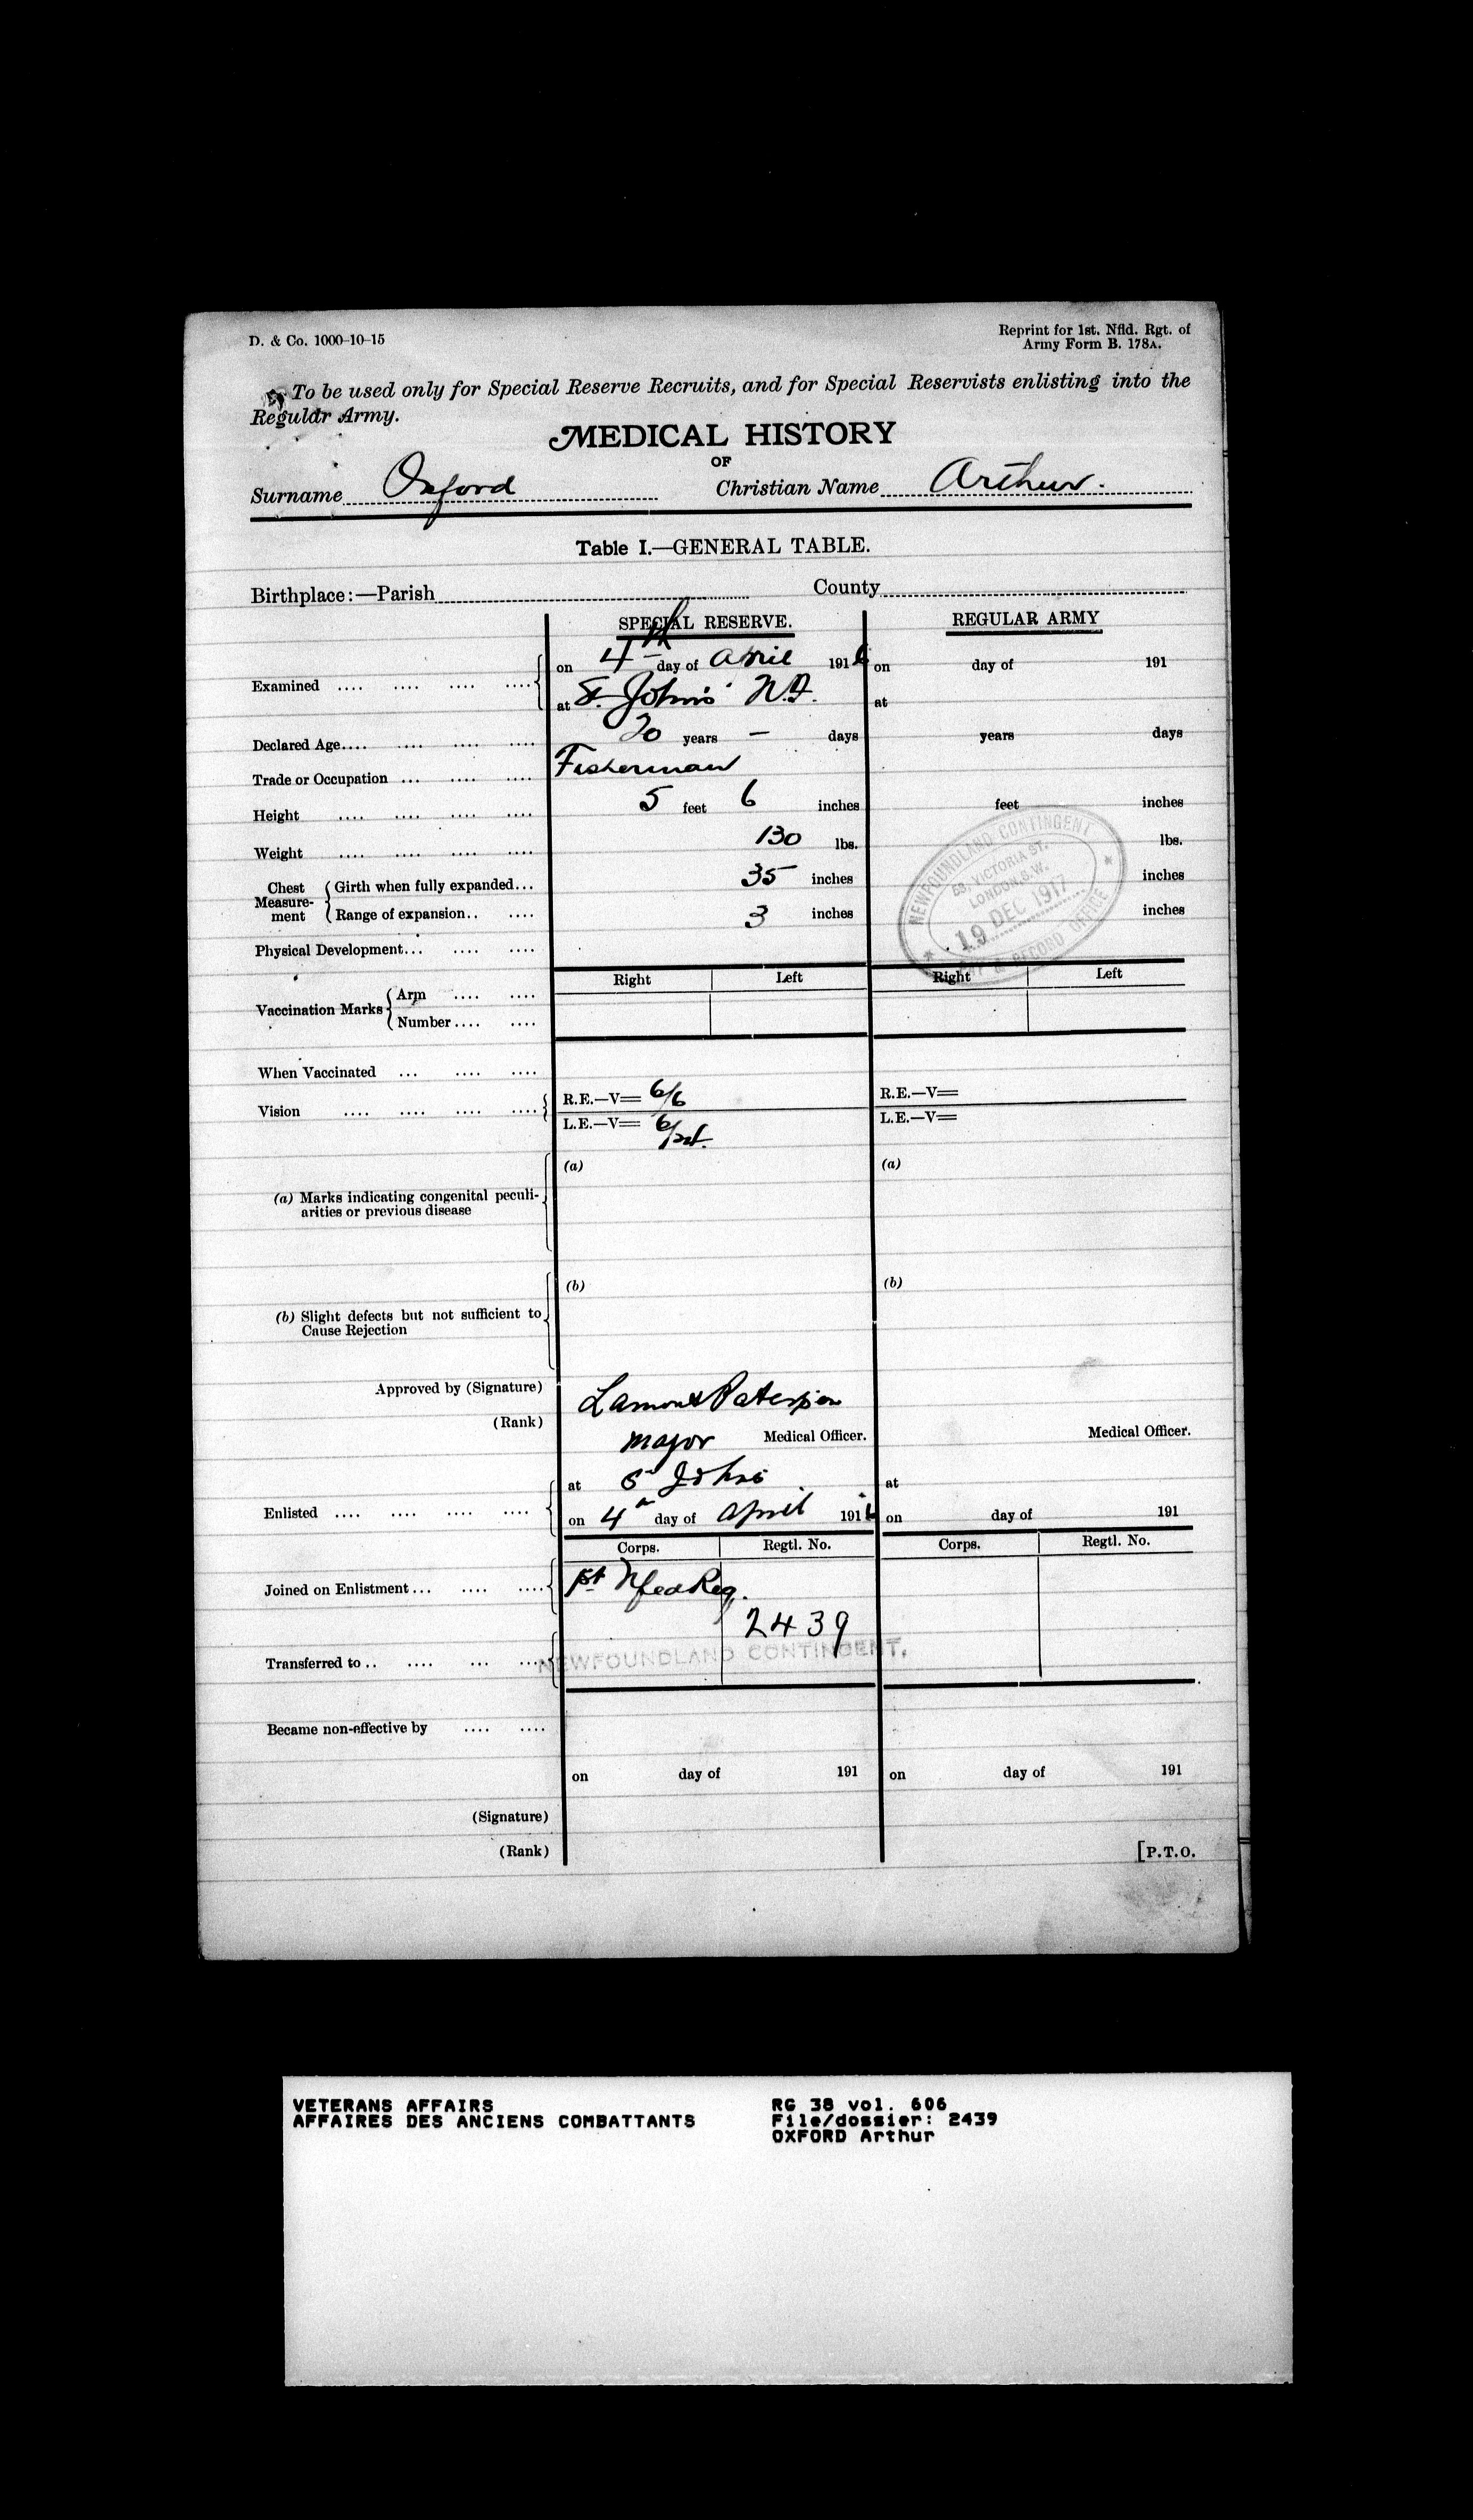 D. & Co. 1000-10-15
Reprint for 1st. Nfld. Rgt. of
Army Form B. 178A.
To be used only for Special Reserve Recruits, and for Special Reservists enlisting into the
Regular Army.
MEDICAL HISTORY
OF
Surname Oxford Christian Name Arthur.
Table I.—GENERAL TABLE.
Birthplace:—Parish County
SPECIAL RESERVE. REGULAR ARMY
Examined .... .... .... ....
on 4th day of April 1916 on day of 191
at St. John's N.F. at
Declared Age.... .... .... .... 20 years — days years days
Trade or Occupation ... .... .... Fisherman
Height .... .... .... .... 5 feet 6 inches feet inches
Weight .... .... .... .... 130 lbs. lbs.
Chest Measure-ment
Girth when fully expanded... 35 inches inches
Range of expansion.. .... 3 inches inches
NEWFOUNDLAND CONTINGENT
58, VICTORIA ST.
LONDON, S.W.
19 DEC 1917
PAY & RECORD OFFICE
Physical Development... .... ....
Right Left Right Left
Vaccination Marks
Arm .... ....
Number.... ....
When Vaccinated ... .... ....
Vision .... .... .... ....
R.E.—V= 6/6 R.E.—V=
L.E.—V= L.E.—V=
(a) (a)
(a) Marks indicating congenital peculi-
arities or previous disease
(b) (b)
(b) Slight defects but not sufficient to
Cause Rejection
Approved by (Signature) Lamont Paterson
(Rank) Major Medical Officer. Medical Officer.
Enlisted .... .... .... ....
at St Johns at
on 4th day of April 1916 on day of 191
Corps. Regtl. No. Corps. Regtl. No.
Joined on Enlistment... .... .... 1st Nfld Reg.
2439
Transferred to .. .... ... ....
NEWFOUNDLAND CONTINGENT.
Became non-effective by .... ....
on day of 191 on day of 191
(Signature)
(Rank)
[P.T.O.
VETERANS AFFAIRS RG 38 vol. 606
AFFAIRES DES ANCIENS COMBATTANTS File/dossier: 2439
OXFORD Arthur